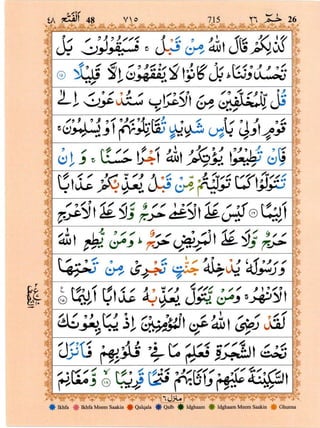 ٤٨ اَلْفَتْح 48 ٧١٥ 715 حٰمٓ ٢٦ 26
كَذٰلِكُمْ قَالَ اللّٰهُ مِنْ قَبْلُ ۚ فَسَيَقُوْلُوْنَ بَلْ
تَحْسُدُوْنَنَا ؕ بَلْ كَانُوْا لَا يَفْقَهُوْنَ اِلَّا قَلِيْلًا ﴿۱۵﴾
قُلْ لِّلْمُخَلَّفِيْنَ مِنَ الْاَعْرَابِ سَتُدْعَوْنَ اِلٰى
قَوْمٍ اُولِىْ بَاْسٍ شَدِيْدٍ تُقَاتِلُوْنَهُمْ اَوْ يُسْلِمُوْنَ ۚ
فَاِنْ تُطِيْعُوْا يُؤْتِكُمُ اللّٰهُ اَجْرًا حَسَنًا ۚ وَاِنْ
تَتَوَلَّوْا كَمَا تَوَلَّيْتُمْ مِّنْ قَبْلُ يُعَذِّبْكُمْ عَذَابًا
اَلِيْمًا ﴿۱۶﴾ لَيْسَ عَلَى الْاَعْمٰى حَرَجٌ وَّلَا عَلَى الْاَعْرَجِ
حَرَجٌ وَّلَا عَلَى الْمَرِيْضِ حَرَجٌ ؕ وَمَنْ يُّطِعِ اللّٰهَ
وَرَسُوْلَهٗ يُدْخِلْهُ جَنّٰتٍ تَجْرِىْ مِنْ تَحْتِهَا
الْاَنْهٰرُ ۚ وَمَنْ يَّتَوَلَّ يُعَذِّبْهُ عَذَابًا اَلِيْمًا ﴿۱۷﴾
لَقَدْ رَضِىَ اللّٰهُ عَنِ الْمُؤْمِنِيْنَ اِذْ يُبَايِعُوْنَكَ
تَحْتَ الشَّجَرَةِ فَعَلِمَ مَا فِىْ قُلُوْبِهِمْ فَاَنْزَلَ
السَّكِيْنَةَ عَلَيْهِمْ وَاَثَابَهُمْ فَتْحًا قَرِيْبًا ﴿۱۸﴾ وَّمَغَانِمَ
منزل ٦
Ikhfa Ikhfa Meem Saakin Qalqala Qalb Idghaam Idghaam Meem Saakin Ghunna